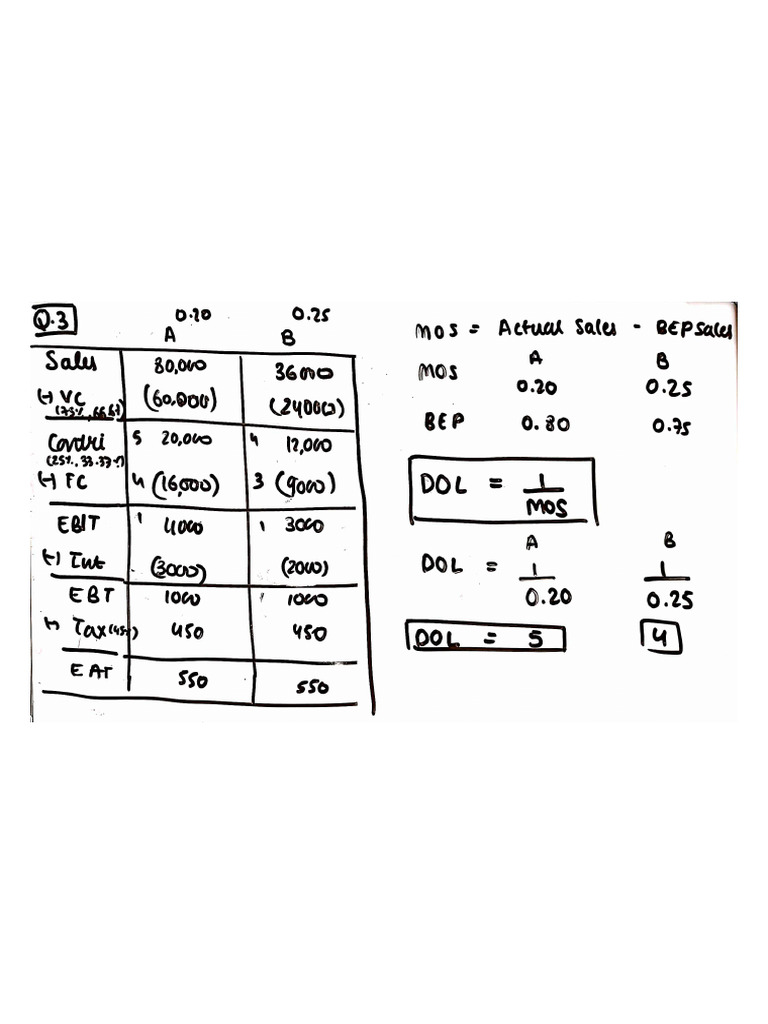 Q.3 0.20 0.25
A B
Sales 80,000 36000
(-) VC (60,000) (24000)
(75%, 66.67)
Contri 5 20,000 4 12,000
(25%, 33.33%)
(-) FC 4 (16,000) 3 (9000)
EBIT 1 4000 1 3000
(-) Int (3000) (2000)
EBT 1000 1 1000
(-) Tax (45%) 450 450
EAT 550 550
MOS = Actual Sales - BEP Sales
A B
MOS 0.20 0.25
BEP 0.80 0.75
DOL = 1
MOS
A B
DOL = 1 1
0.20 0.25
DOL = 5 4